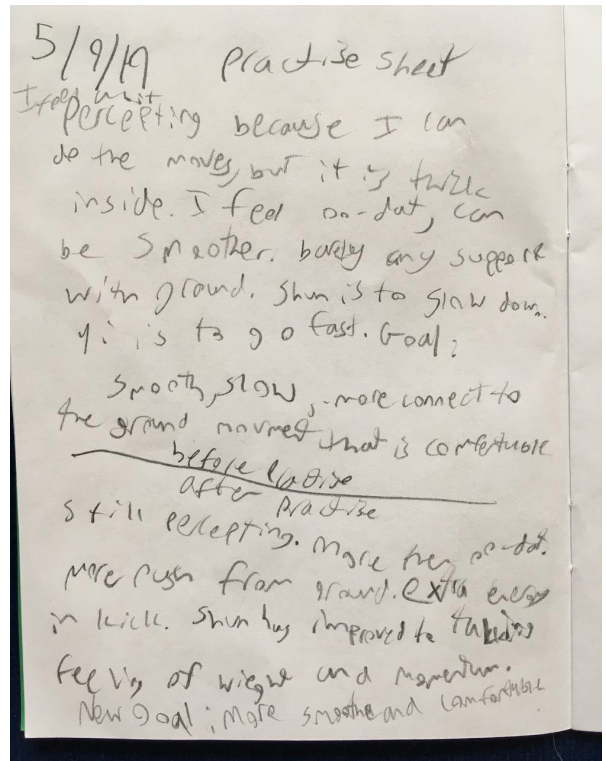 5/9/19 Practise sheet
I feel whit
Percepting because I can
do the moves, but it is
inside. I feel oo-dat, can
be smoother. barley any support
with ground. Shun is to slow down.
yi is to go fast. Goal:
Smooth, slow, more connect to
the ground movment that is comfertuble
before Practise
after Practise
Still Percepting. More then oo-dat.
More push from ground. extra energy
in kick. Shun has improved to
feeling of wieght and momentum.
New Goal: More smoothe and comfortuble